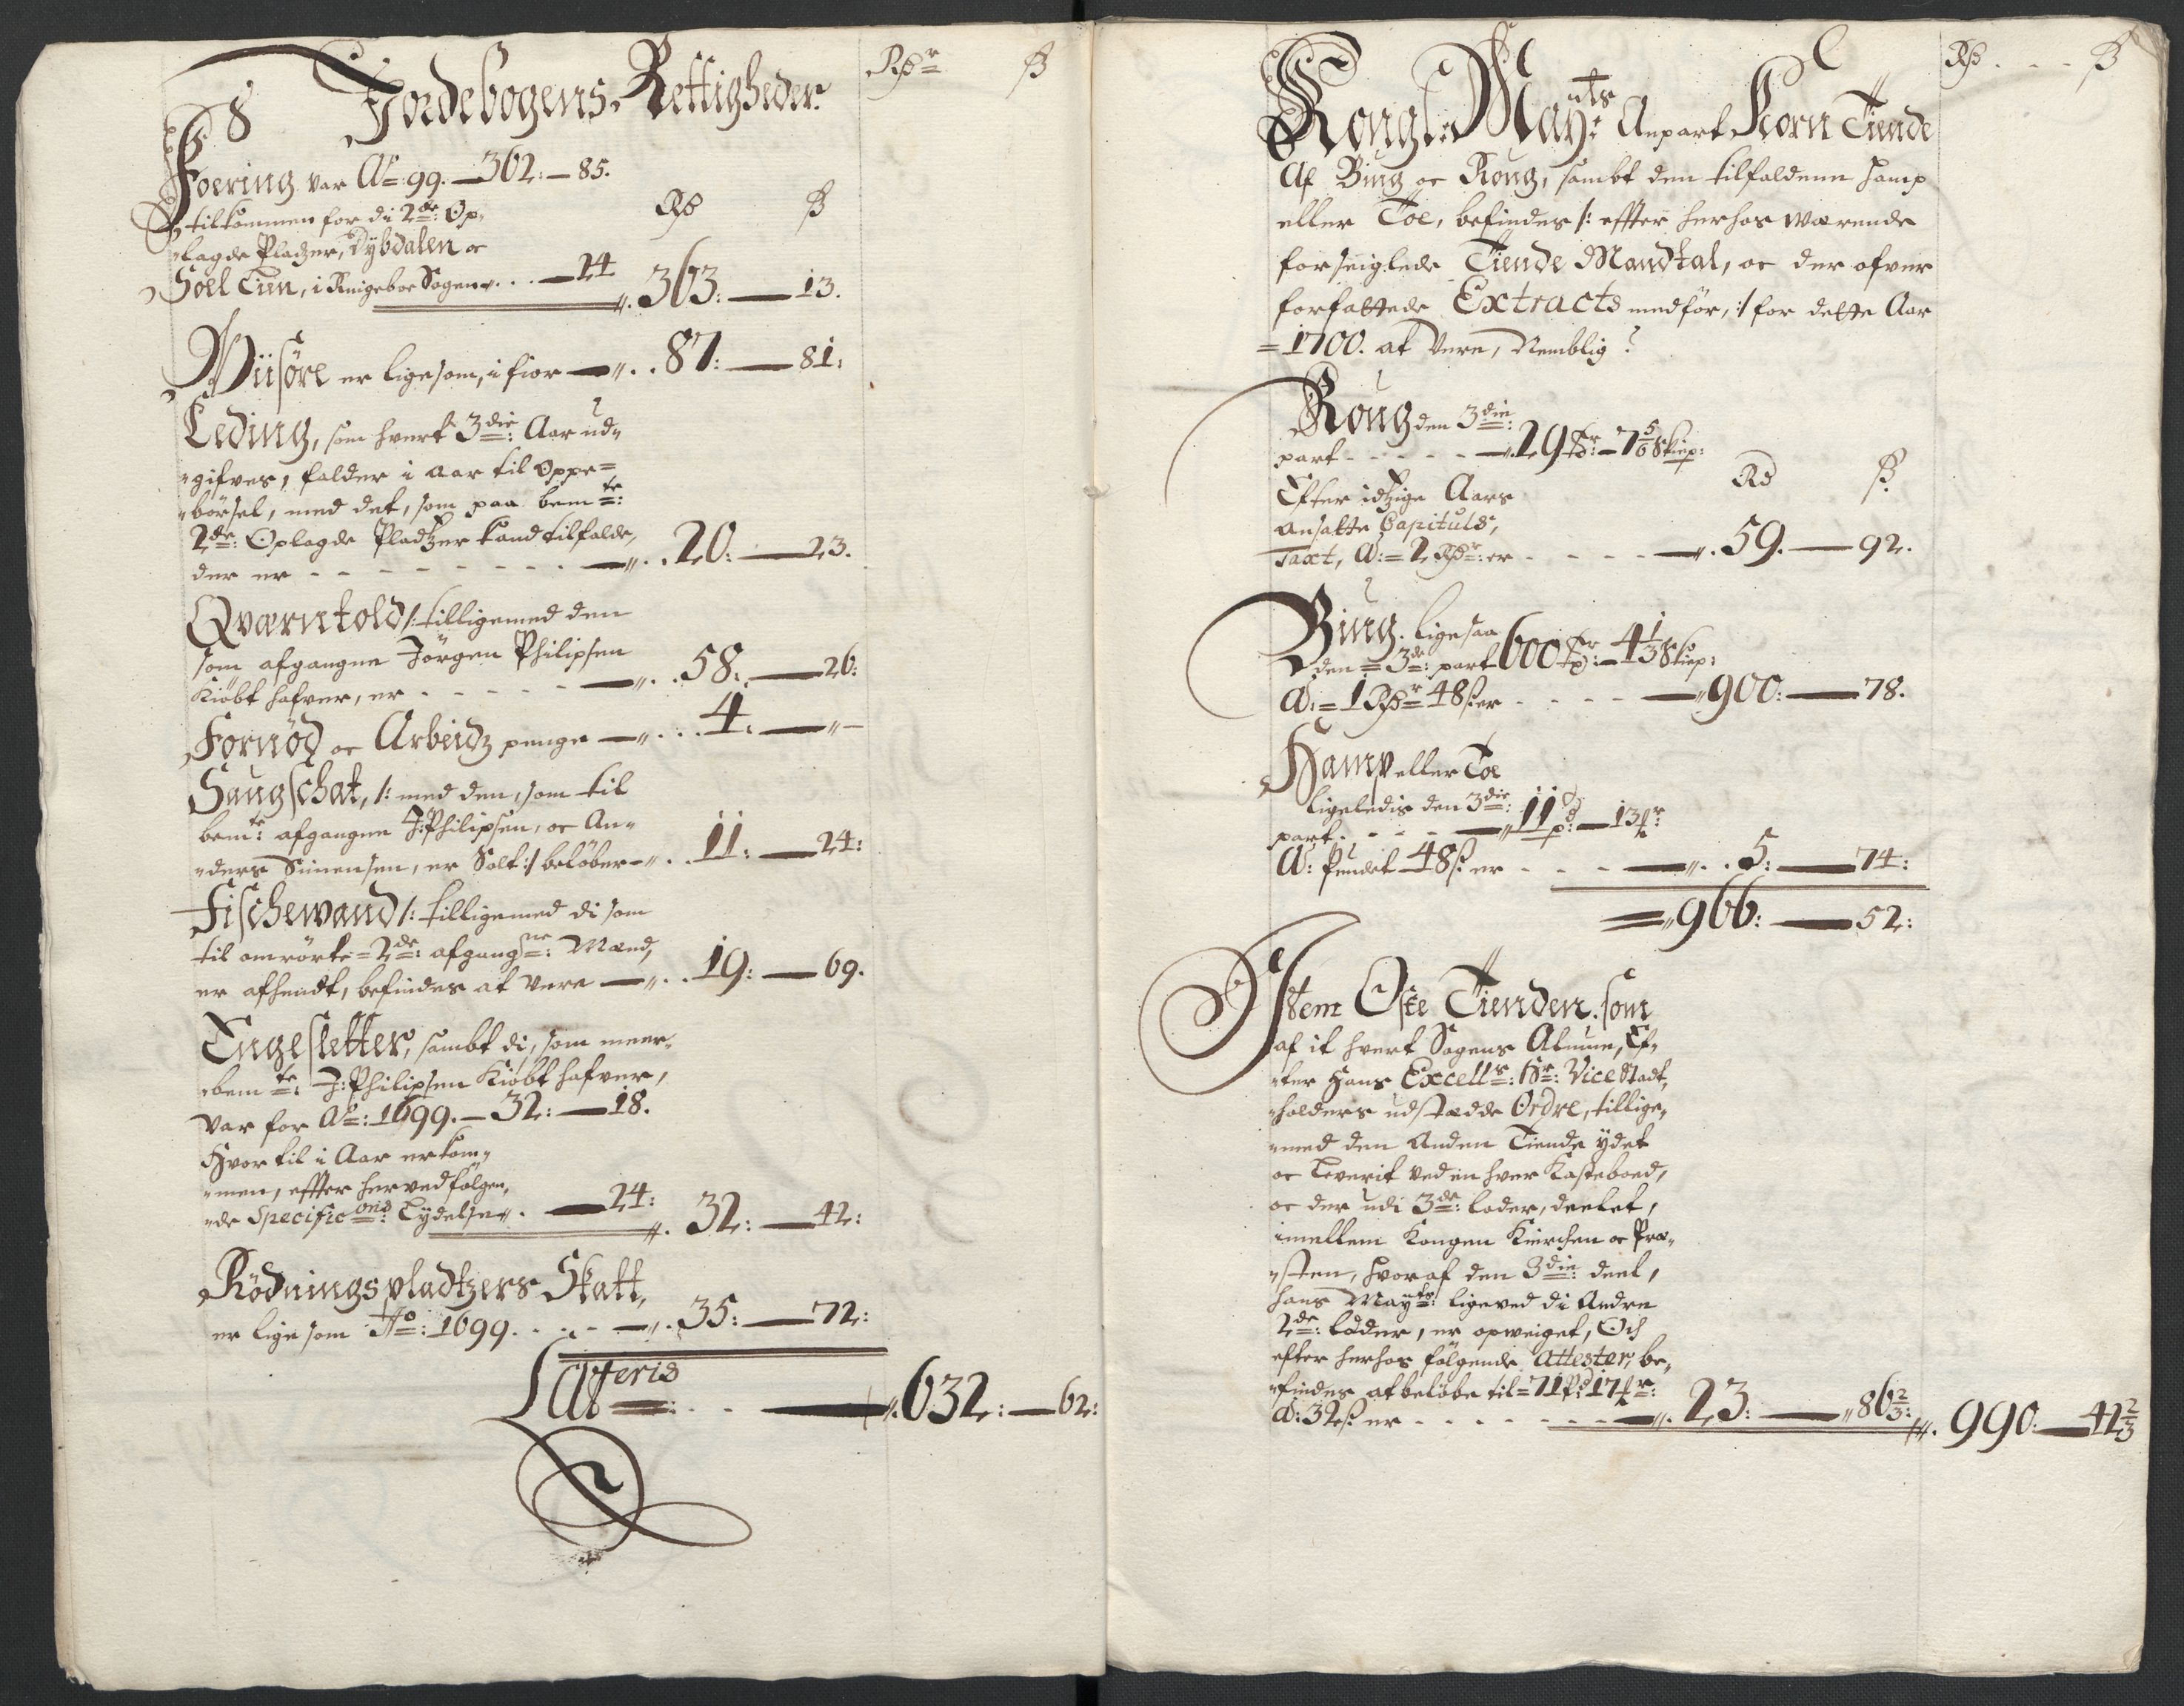 8 Jordebogens Rettigheder. Rdr ß
Foering var Ao: 99. — 362: — 85.
tilkommen for di 2de: Op- Rd ß
lagde Pladzer, Dybdalen oc
Soel Tien, i Ringeboe Sogen . . — 24
363: — 13.
Wiisöre er ligesom, i fior — 87: — 81:
Leding, som hvert 3die: Aar ud-
gifves, falder i aar til Oppe=
börsel, med det, som paa bemte:
2de: Oplagde Pladtzer kand tilfalde,
der er - - - - — 20: — 23.
Qværntold /: tilligemed den
som afgangne Jörgen Philipsen
Kiöbt hafver, er - - - — 58: — 26:
Fornöd oc Arbeidz penge — 4: — „ —
Saugschat, /: med den, som til
bemte: afgangne J: Philipsen, oc An-
ders Simensen, er Solt :/ belöber — 11: — 24:
Fischewand /: tilligemed di som
til omrörte = 2de: afgangne: Mænd,
er afhendt, befindes at Vere — 19: — 69.
Engesletter, sambt di, som meer-
bemte: J: Philipsen Kiöbt hafver,
var for Ao: 1699. — 32: — 18.
Hvor til i Aar er kom-
men, effter herved fölgen-
de Specificons: Lydelse . — 24:
32: — 42:
Rödningspladtzers Skatt,
er lige som Ao: 1699. - - - — 35: — 72:
Lateris
632: — 62:
Kongl: Mayts: Anpart Korn Tiende Rd - - - ß
Af Biug oc Roug, sambt den tilfaldene Hamp
eller Toe, befindes /: effter herhos værende
forseiglede Tiende Mandtal, oc der ofver
forfattede Extracts medför, :/ for dette Aar
= 1700. at Vere, Nemblig
Roug den 3die:
part - - - - — 29 Tdr: — 7 5/6 Skiep:
Efter idtzige Aars Rd ß
ansatte Capituls,
Taxt, A: = 2 Rdr: er - - - - — 59. — 92.
Biug. ligesaa
den = 3de: part 600 Tdr: — 4 1/3 Skiep:
A: = 1 Rdr 48 ß er - - - — 900: — 78.
Hamp eller Toe
ligeledis den 3die:
part - - - — 11 pd: — 13 ℔r:
A: Pundet 48 ß er - - - — 5: — 74:
= 966: — 52:
Item Oste Tienden. som
af it hvert Sogens Almue, Ef-
ter Hans Excells: Hr: Vice Stadt-
holders udstædde Ordre, tillige-
med den Anden Tiende ydet
oc Leverit ved en hver Kasteboed,
oc der udi 3de: loder, deelet,
imellem Kongen Kierchen oc Præ-
sten, hvoraf den 3die: deel,
hans Mayts: ligeved di Andre
2de: lader, er opweiget, Och
efter herhos fölgende Attester, be-
findes at belöbe til = 71 Pd: 17 ℔r:
A: 32 ß er - - - - — 23: — 86 2/3: 990: — 42 2/3